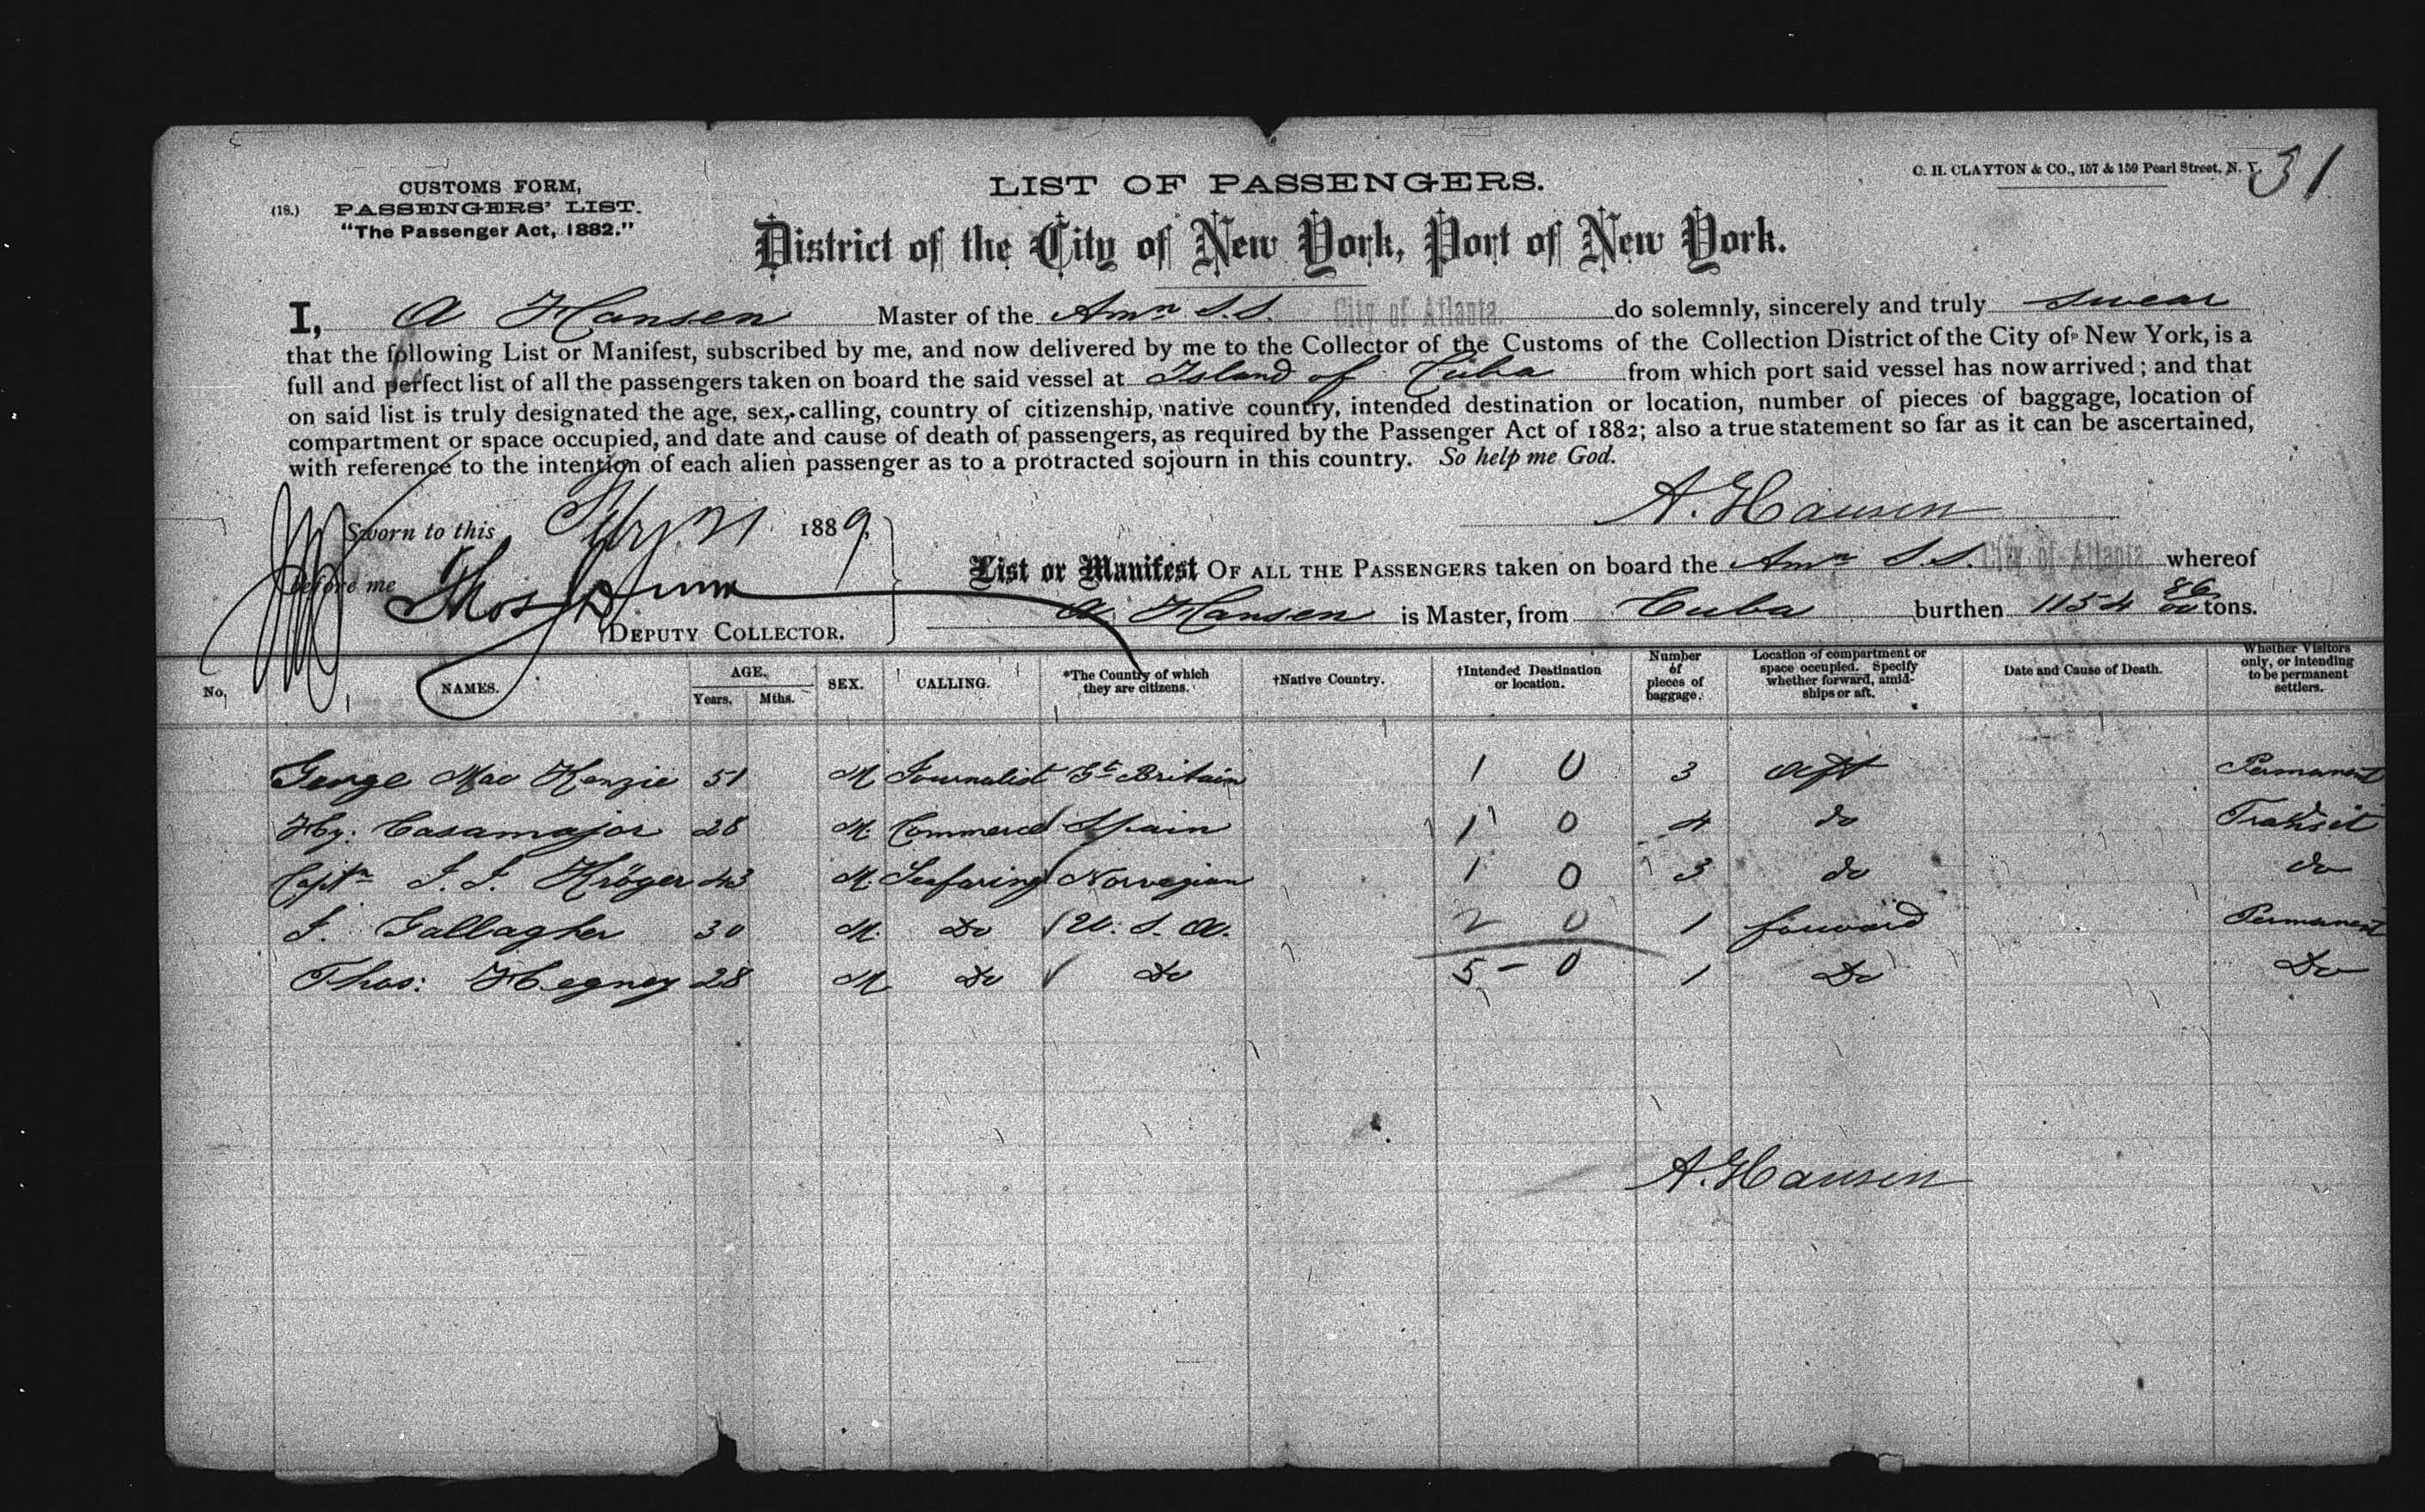 31
CUSTOMS FORM,
(18.) PASSENGERS' LIST.
"The Passenger Act, 1882."
LIST OF PASSENGERS.
C. H. CLAYTON & CO., 157 & 159 Pearl Street, N. Y.
District of the City of New York, Port of New York.
I, A Hansen Master of the Amn S.S. City of Atlanta do solemnly, sincerely and truly swear
that the following List or Manifest, subscribed by me, and now delivered by me to the Collector of the Customs of the Collection District of the City of New York, is a
full and perfect list of all the passengers taken on board the said vessel at Island of Cuba from which port said vessel has now arrived; and that
on said list is truly designated the age, sex, calling, country of citizenship, native country, intended destination or location, number of pieces of baggage, location of
compartment or space occupied, and date and cause of death of passengers, as required by the Passenger Act of 1882; also a true statement so far as it can be ascertained,
with reference to the intention of each alien passenger as to a protracted sojourn in this country. So help me God.
A. Hansen
Sworn to this 21 1889,
before me Thos
DEPUTY COLLECTOR.
List or Manifest OF ALL THE PASSENGERS taken on board the Amn S.S. City of Atlanta whereof
A Hansen is Master, from Cuba burthen 1154 86/100 tons.
No. NAMES. AGE. Years. Mths. SEX. CALLING. *The Country of which they are citizens. †Native Country. †Intended Destination or location. Number of pieces of baggage. Location of compartment or space occupied. Specify whether forward, amidships or aft. Date and Cause of Death. Whether Visitors only, or intending to be permanent settlers.
George Mac Kenzie 51 M Journalist Gt Britain 1 0 3 aft Permanent
Hy: Casamajor 28 M. Commerce Spain 1 0 4 do Transit
Captn J. J. Kröger 43 M. Seafaring Norwegian 1 0 3 do do
J. Gallagher 30 M. Do U. S. A. 2 0 1 forward Permanent
Thos: Hegney 28 M Do Do 5 - 0 1 Do Do
A. Hansen